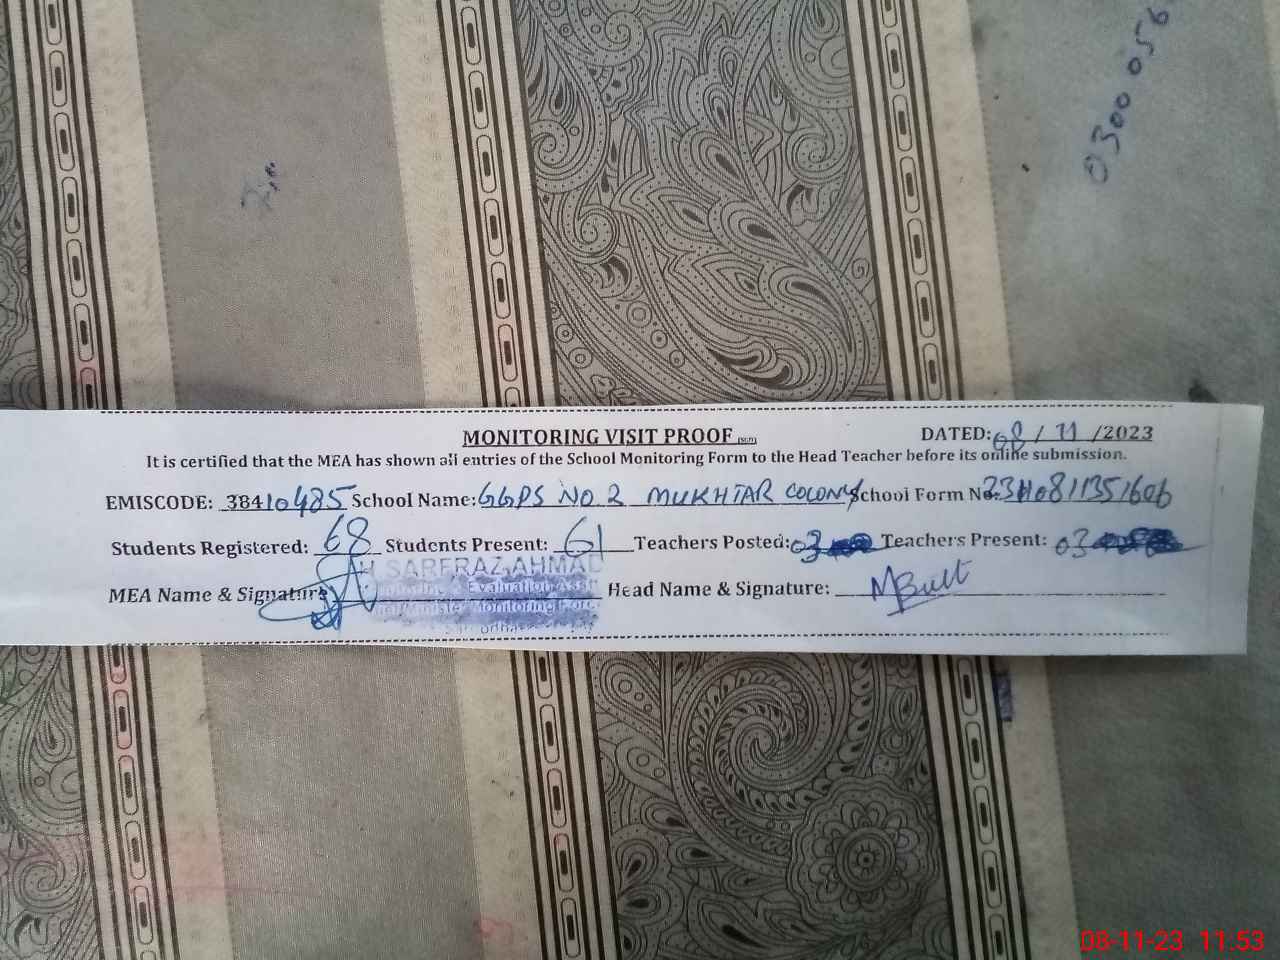 0300 056
MONITORING VISIT PROOF
DATED: 08/11/2023
It is certified that the MEA has shown all entries of the School Monitoring Form to the Head Teacher before its online submission.
EMISCODE: 38410485 School Name: GGPS NO.2 MUKHTAR COLONY School Form No.
Students Registered: 68 Students Present: 61 Teachers Posted: 03 Teachers Present: 03
H SARFRAZ AHMAD
MEA Name & Signature Head Name & Signature: MButt
Monitoring & Evaluation Assi
Chief Minister Monitoring Force
08-11-23 11:53